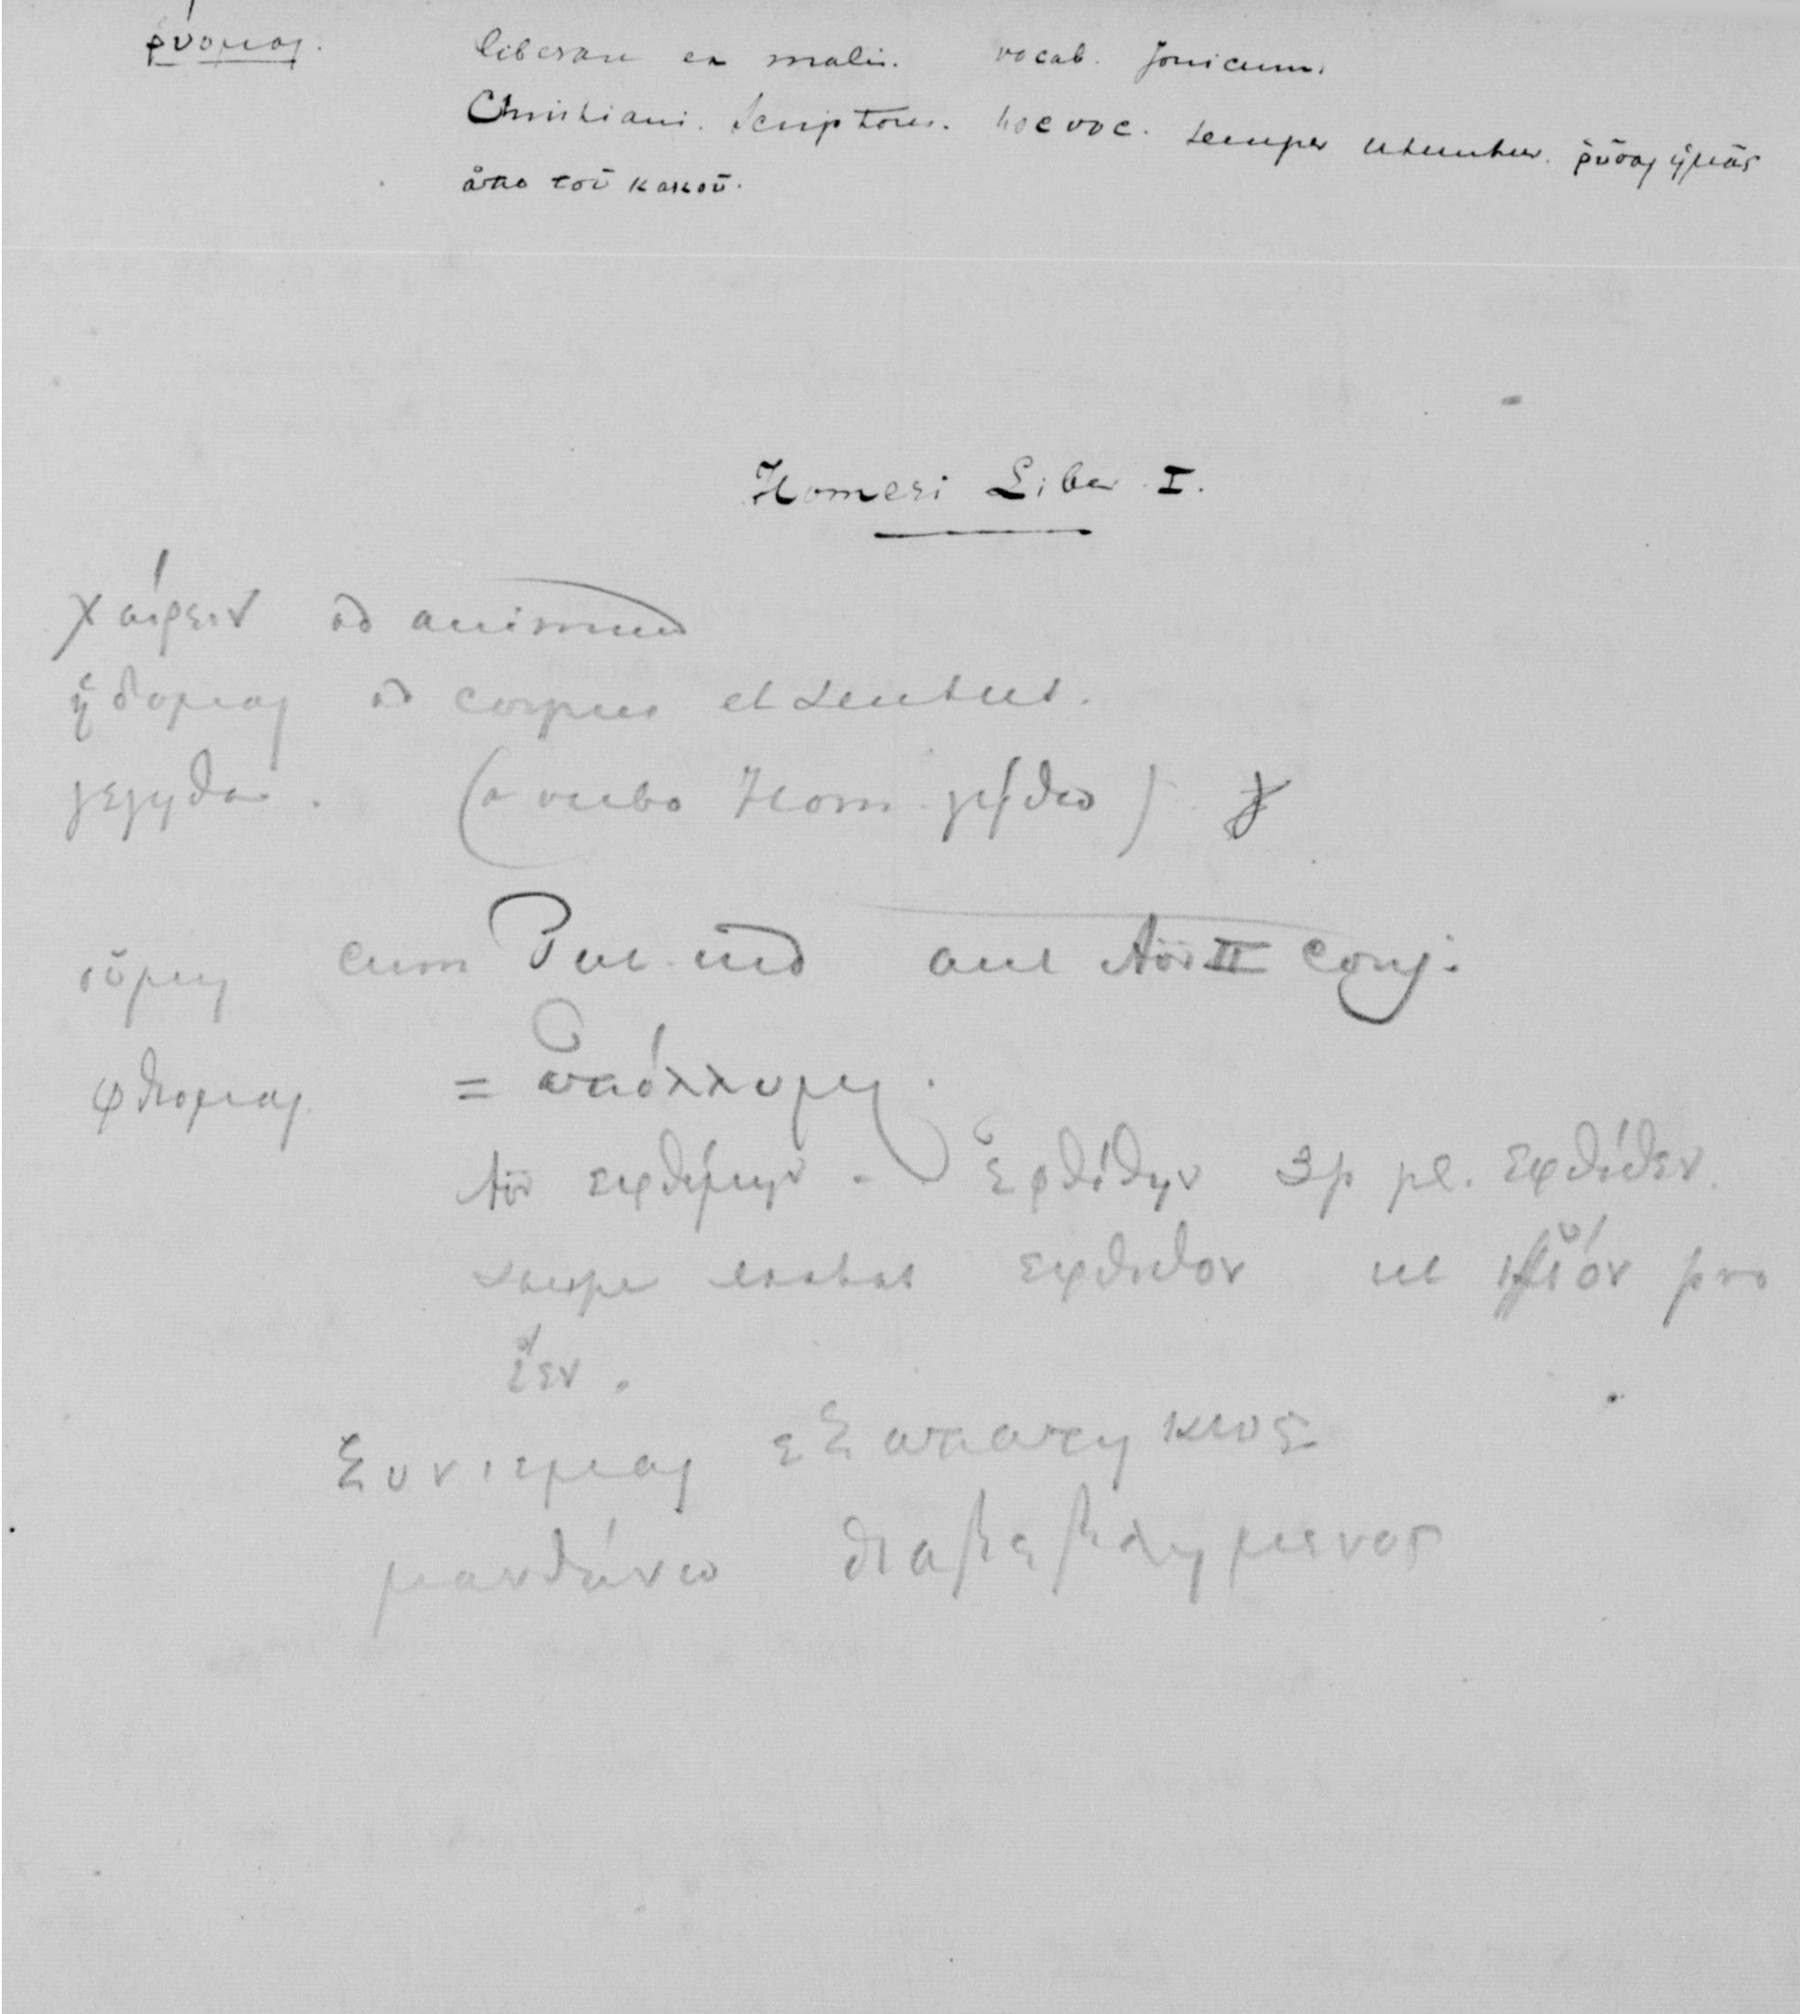 ῥύομαι. liberare ex malis. vocab. Jonicum.
Christiani. Scriptores. hoc voc. semper utuntur. ῥῦσαι ἡμᾶς
ἀπο τοῦ κακοῦ.
Homeri Liber I.
χαίρειν ad animum
ἥδομαι ad corpus et sensus.
γεγηθα. (a verbo Hom. γήθω)
cum Fut. ind aut Aor II conj.
φθιομαι = ἀπόλλυμι.
Aor εφθίμην - ἐφθίθην 3 p pl. εφθίθεν.
saepe exstat εφθιθον ut pro
ξυνιεμαι εξαπατηκως
μανθάνω διαβεβλημενος